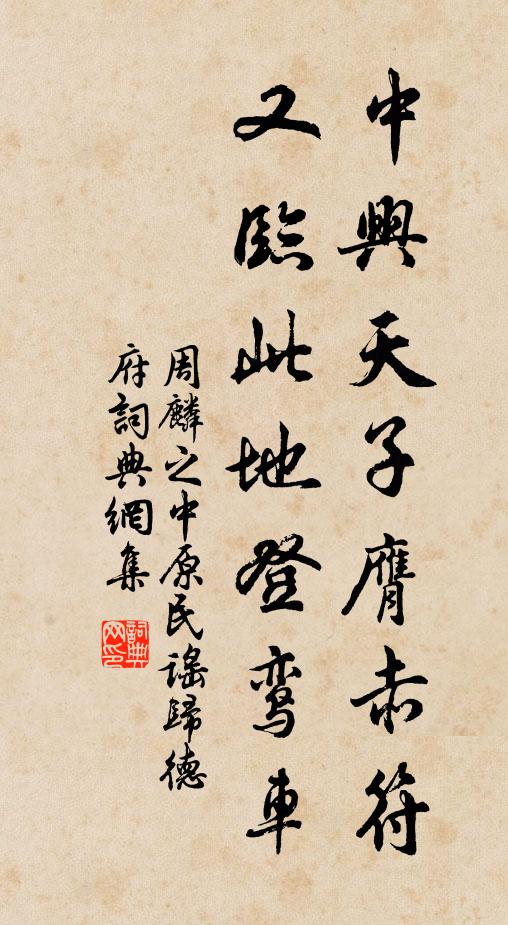 中興天子膺赤符
又臨此地登鸾車
周麟之中原民謠歸德
府詞典網集
詞典网印